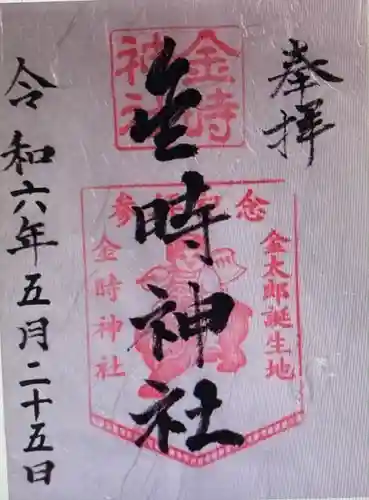 奉拝
金時神社
金時神社
参拝記念
金太郎誕生地
金時神社
令和六年五月二十五日